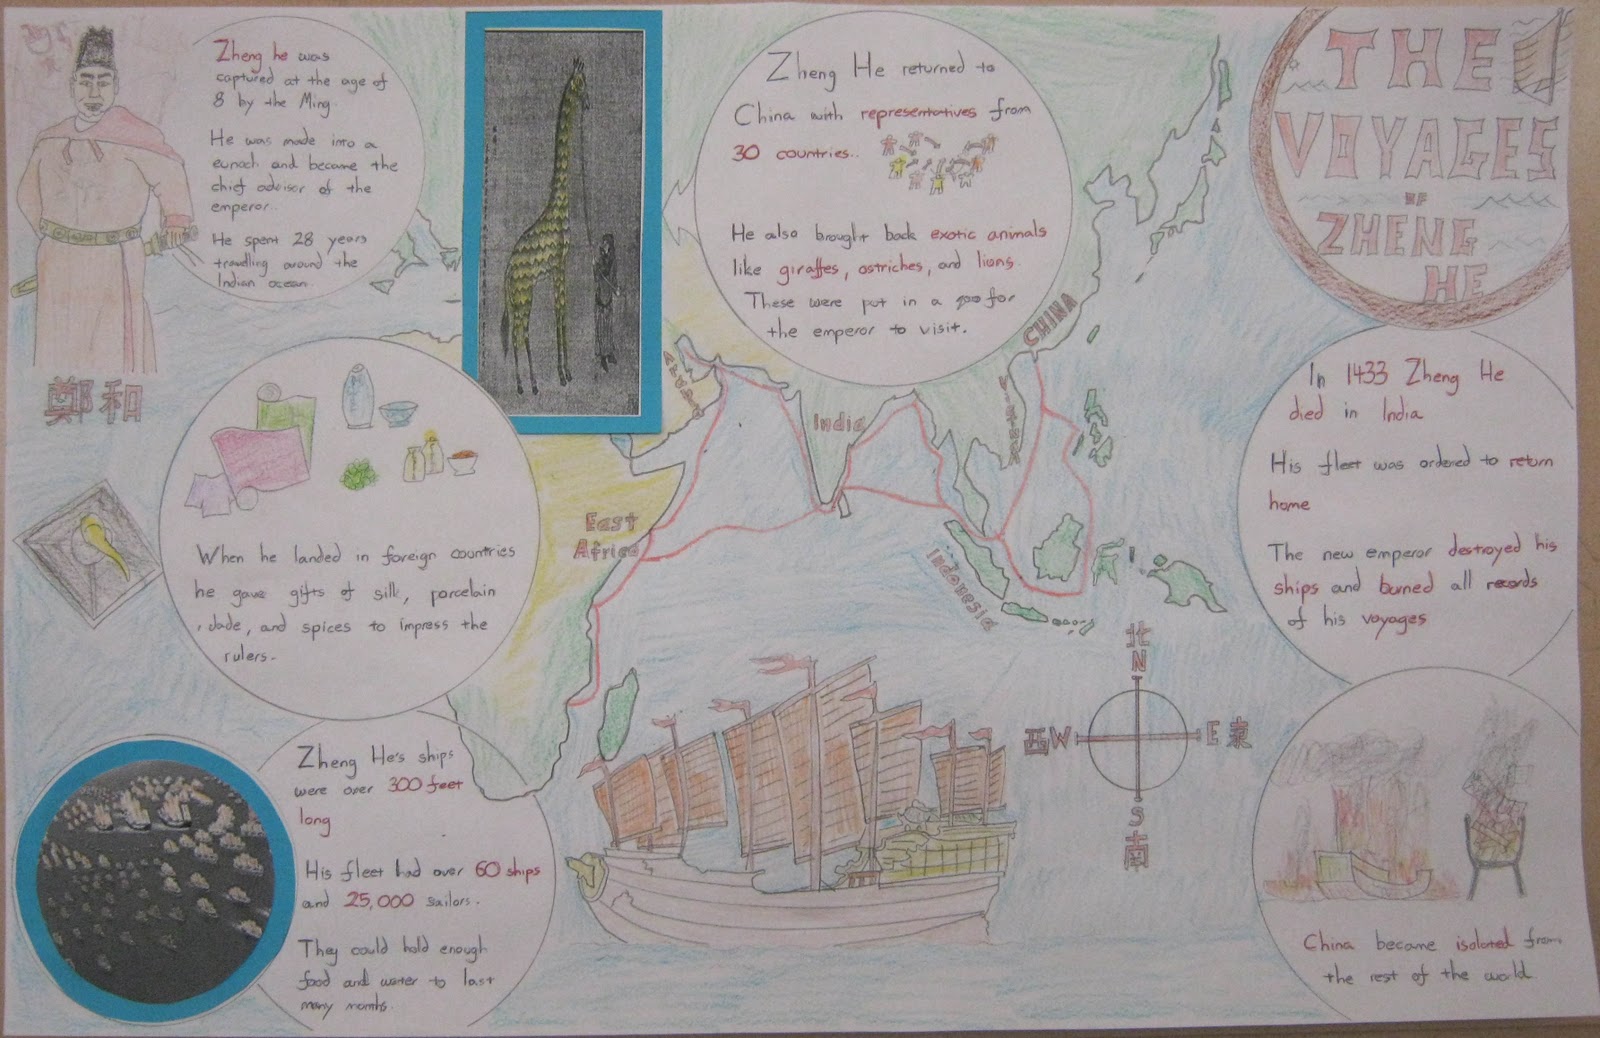 THE
VOYAGES
OF
ZHENG
HE
Zheng he was
captured at the age of
8 by the Ming.
He was made into a
eunoch and became the
chief advisor of the
emperor..
He spent 28 years
travelling around the
Indian ocean
鄭和
Zheng He returned to
China with representatives from
30 countries..
He also brought back exotic animals
like giraffes, ostriches, and lions.
These were put in a zoo for
the emperor to visit.
When he landed in foreign countries
he gave gifts of silk, porcelain
, Jade, and spices to impress the
rulers.
Zheng He's ships
were over 300 feet
long
His fleet had over 60 ships
and 25,000 sailors.
They could hold enough
food and water to last
many months.
In 1433 Zheng He
died in India
His fleet was ordered to return
home
The new emperor destroyed his
ships and burned all records
of his voyages
China became isolated from
the rest of the world
CHINA
India
East
Africa
Indonesia
北
N
西 W
E 東
S
南